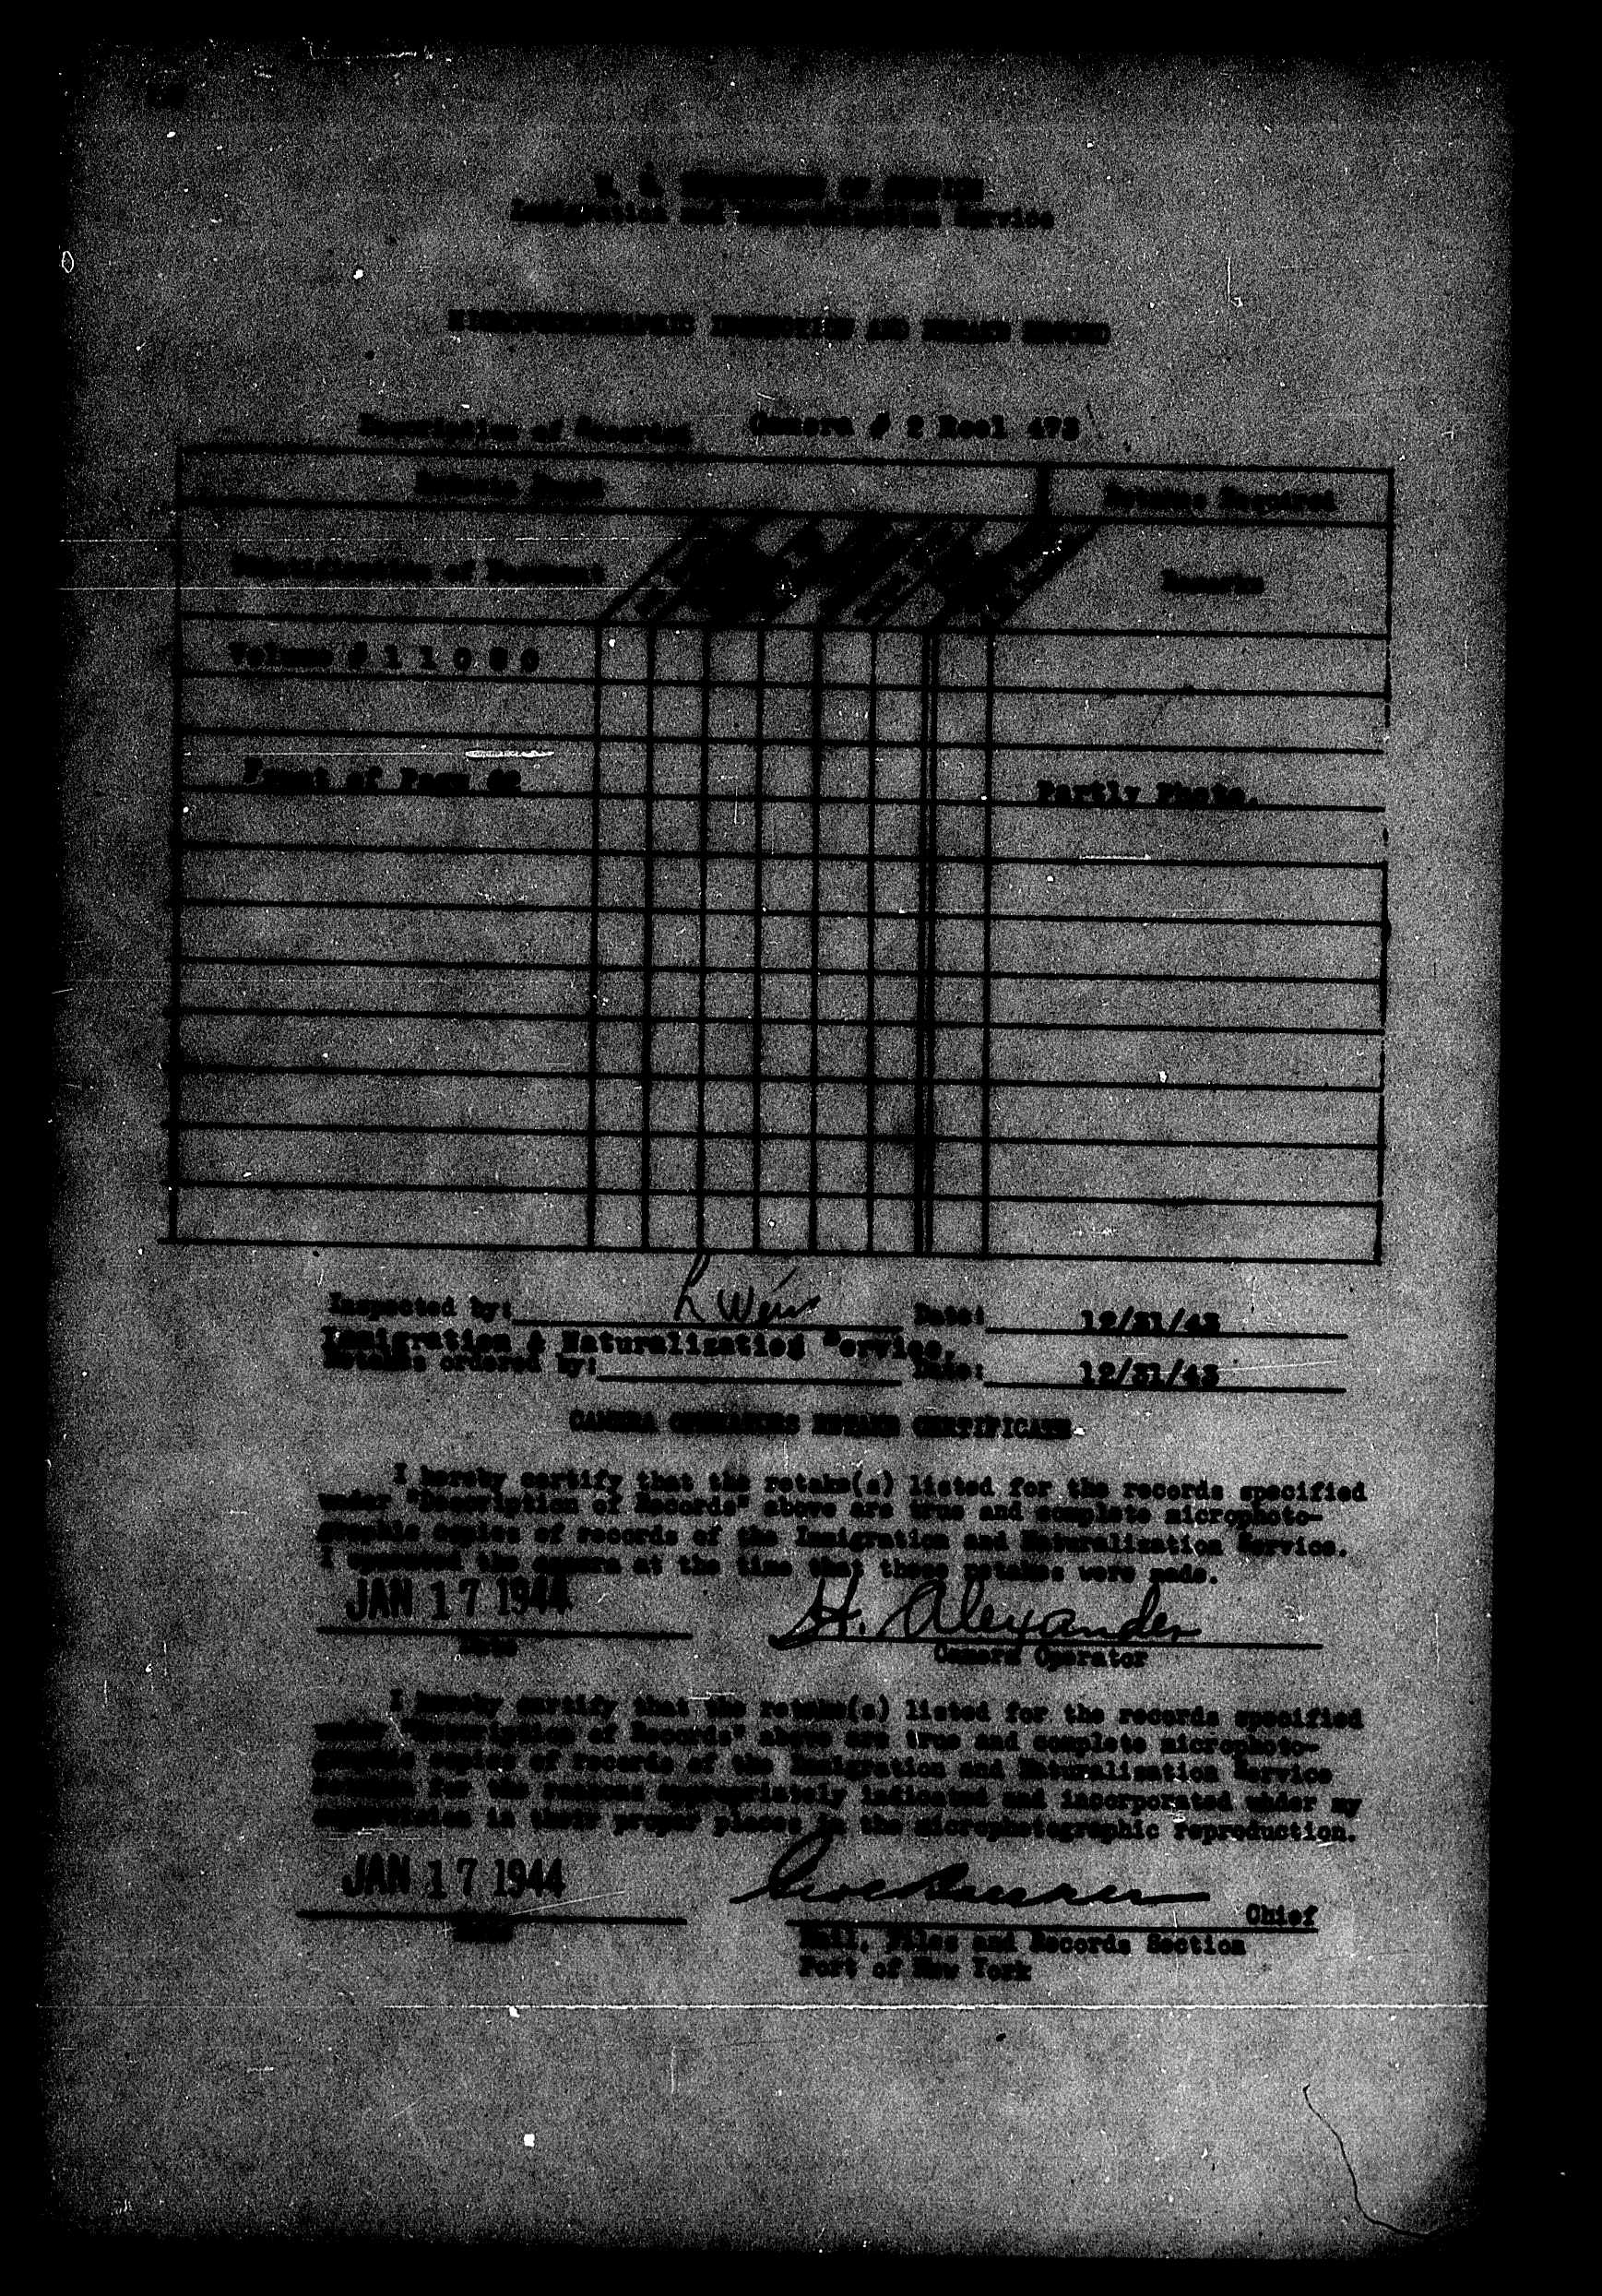 U. S. DEPARTMENT OF JUSTICE
Immigration and Naturalization Service
MICROPHOTOGRAPHIC INSPECTION AND RETAKE RECORD
Description of Records: Camera # 2 Reel 473
Retakes Required
Identification of Document
Remarks
Volume # 1 1 0
Front of Page
Partly Photo.
Inspected by: L Weiss Date: 12/31/43
Immigration & Naturalization Service.
Retakes ordered by: Date: 12/31/43
CAMERA OPERATORS RETAKE CERTIFICATE
I hereby certify that the retake(s) listed for the records specified
under "Description of Records" above are true and complete microphoto-
graphic copies of records of the Immigration and Naturalization Service.
I operated the camera at the time that these retakes were made.
JAN 17 1944 H. Alexander
Date Camera Operator
I hereby certify that the retake(s) listed for the records specified
under "Description of Records" above are true and complete microphoto-
graphic copies of records of the Immigration and Naturalization Service
retaken for the reasons appropriately indicated and incorporated under my
supervision in their proper places in the microphotographic reproduction.
JAN 17 1944
Chief
Date Mail, Files and Records Section
Port of New York